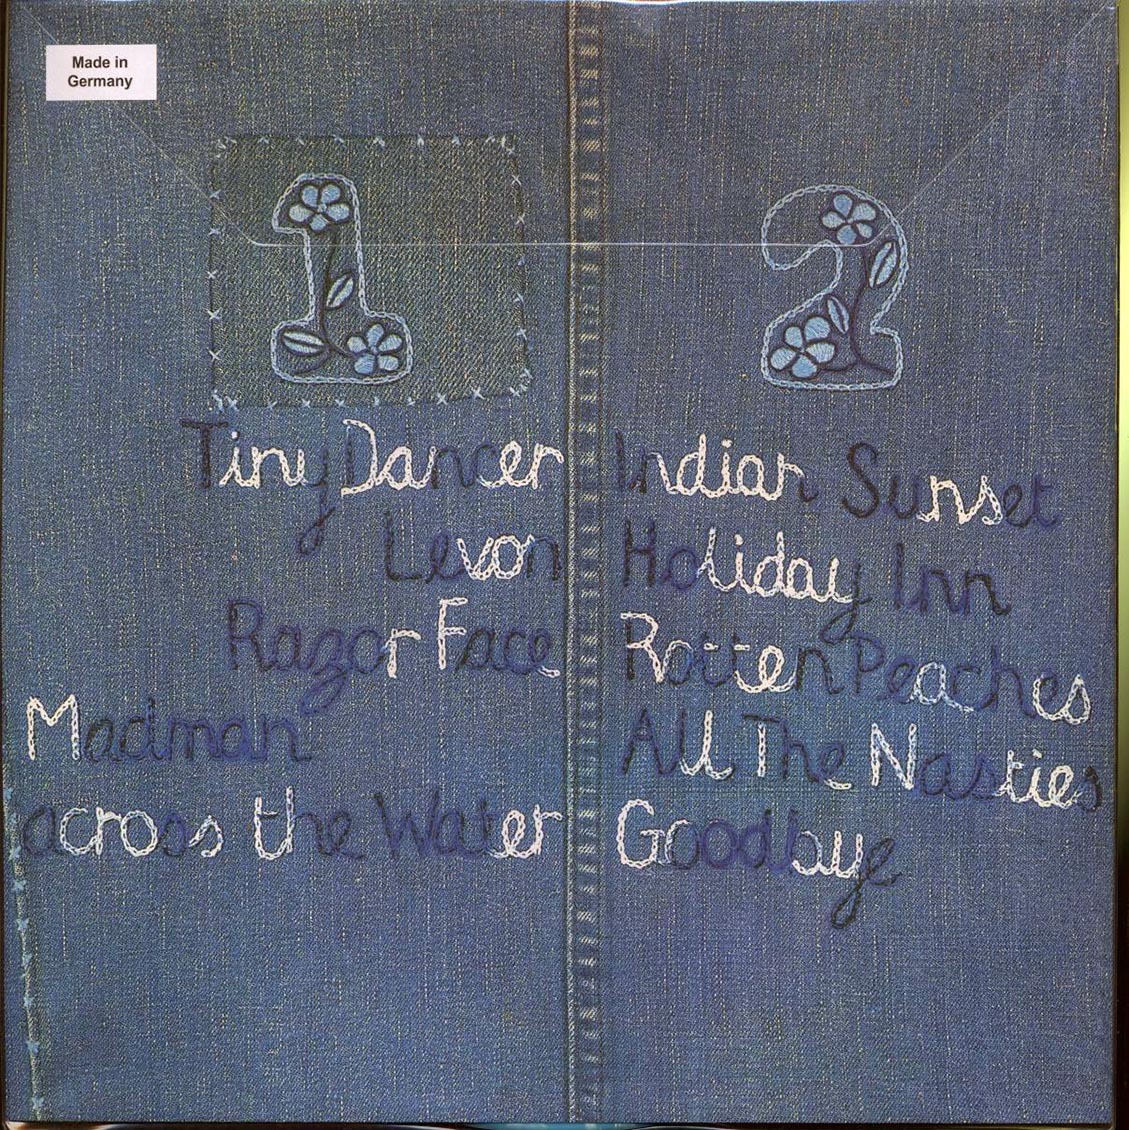 Made in
Germany
1
Tiny Dancer
Levon
Razor Face
Madman
across the Water
2
Indian Sunset
Holiday Inn
Rotten Peaches
All The Nasties
Goodbye